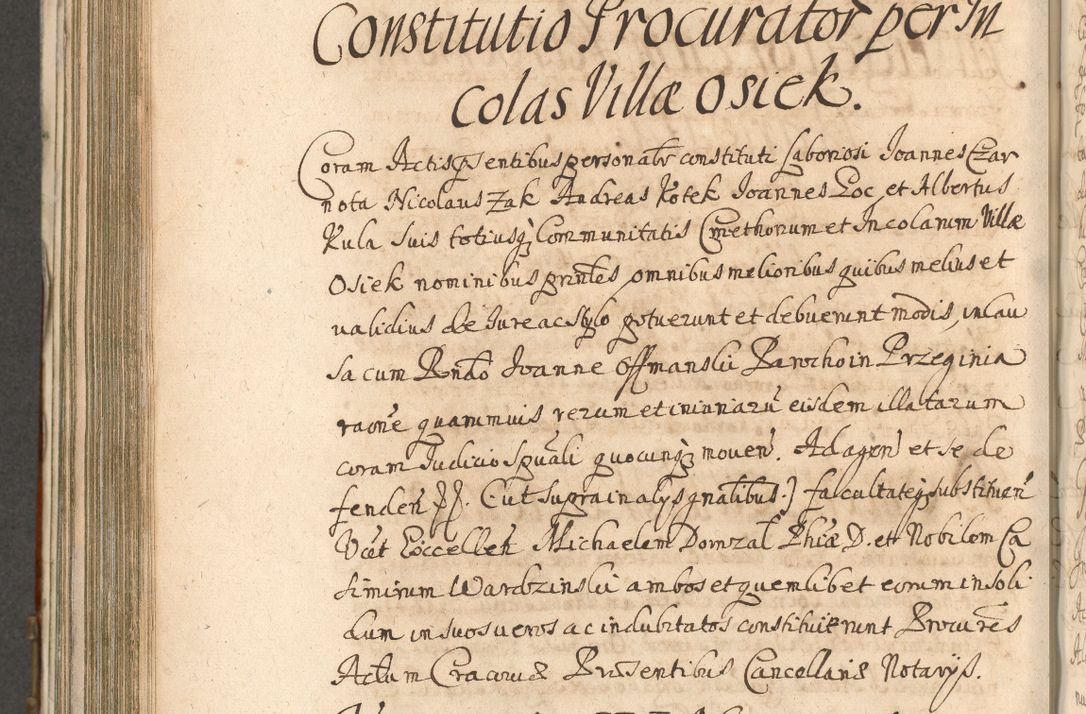 Constitutio Procurator per In
colas Villæ Osiek.
Coram Actis psentibus personalr constituti Laboriosi Joannes Czar
nota Nicolaus Zak Andreas Kotek Joannes Loc et Albertus
Kula suis totiusq Communitatis Cmethonum et Incolarum Villæ
Osiek nominibus prntes omnibus melioribus quibus melius et
validius de Jure ac stylo potuerunt et debuerunt modis, in cau
sa cum Rndo Joanne Offmanslii Parocho in Przeginia
raone quammuis rerum et iniuriarū eisdem illatarum
coram Judicio Spuali quocunq mouen. Ad agen et se de
fenden PP. (:ut supra in alys gnalibus:) facultateq substituen
Vcet Excellen Michaelem Domzal Phiæ D. et Nobilem Ca
simirum Wardzinslii ambos et quemlibet eorum in soli
dum in suos veros ac indubitatos constituerunt Procures
Actum Cracoviæ Præsentibus Cancellariæ Notarijs.